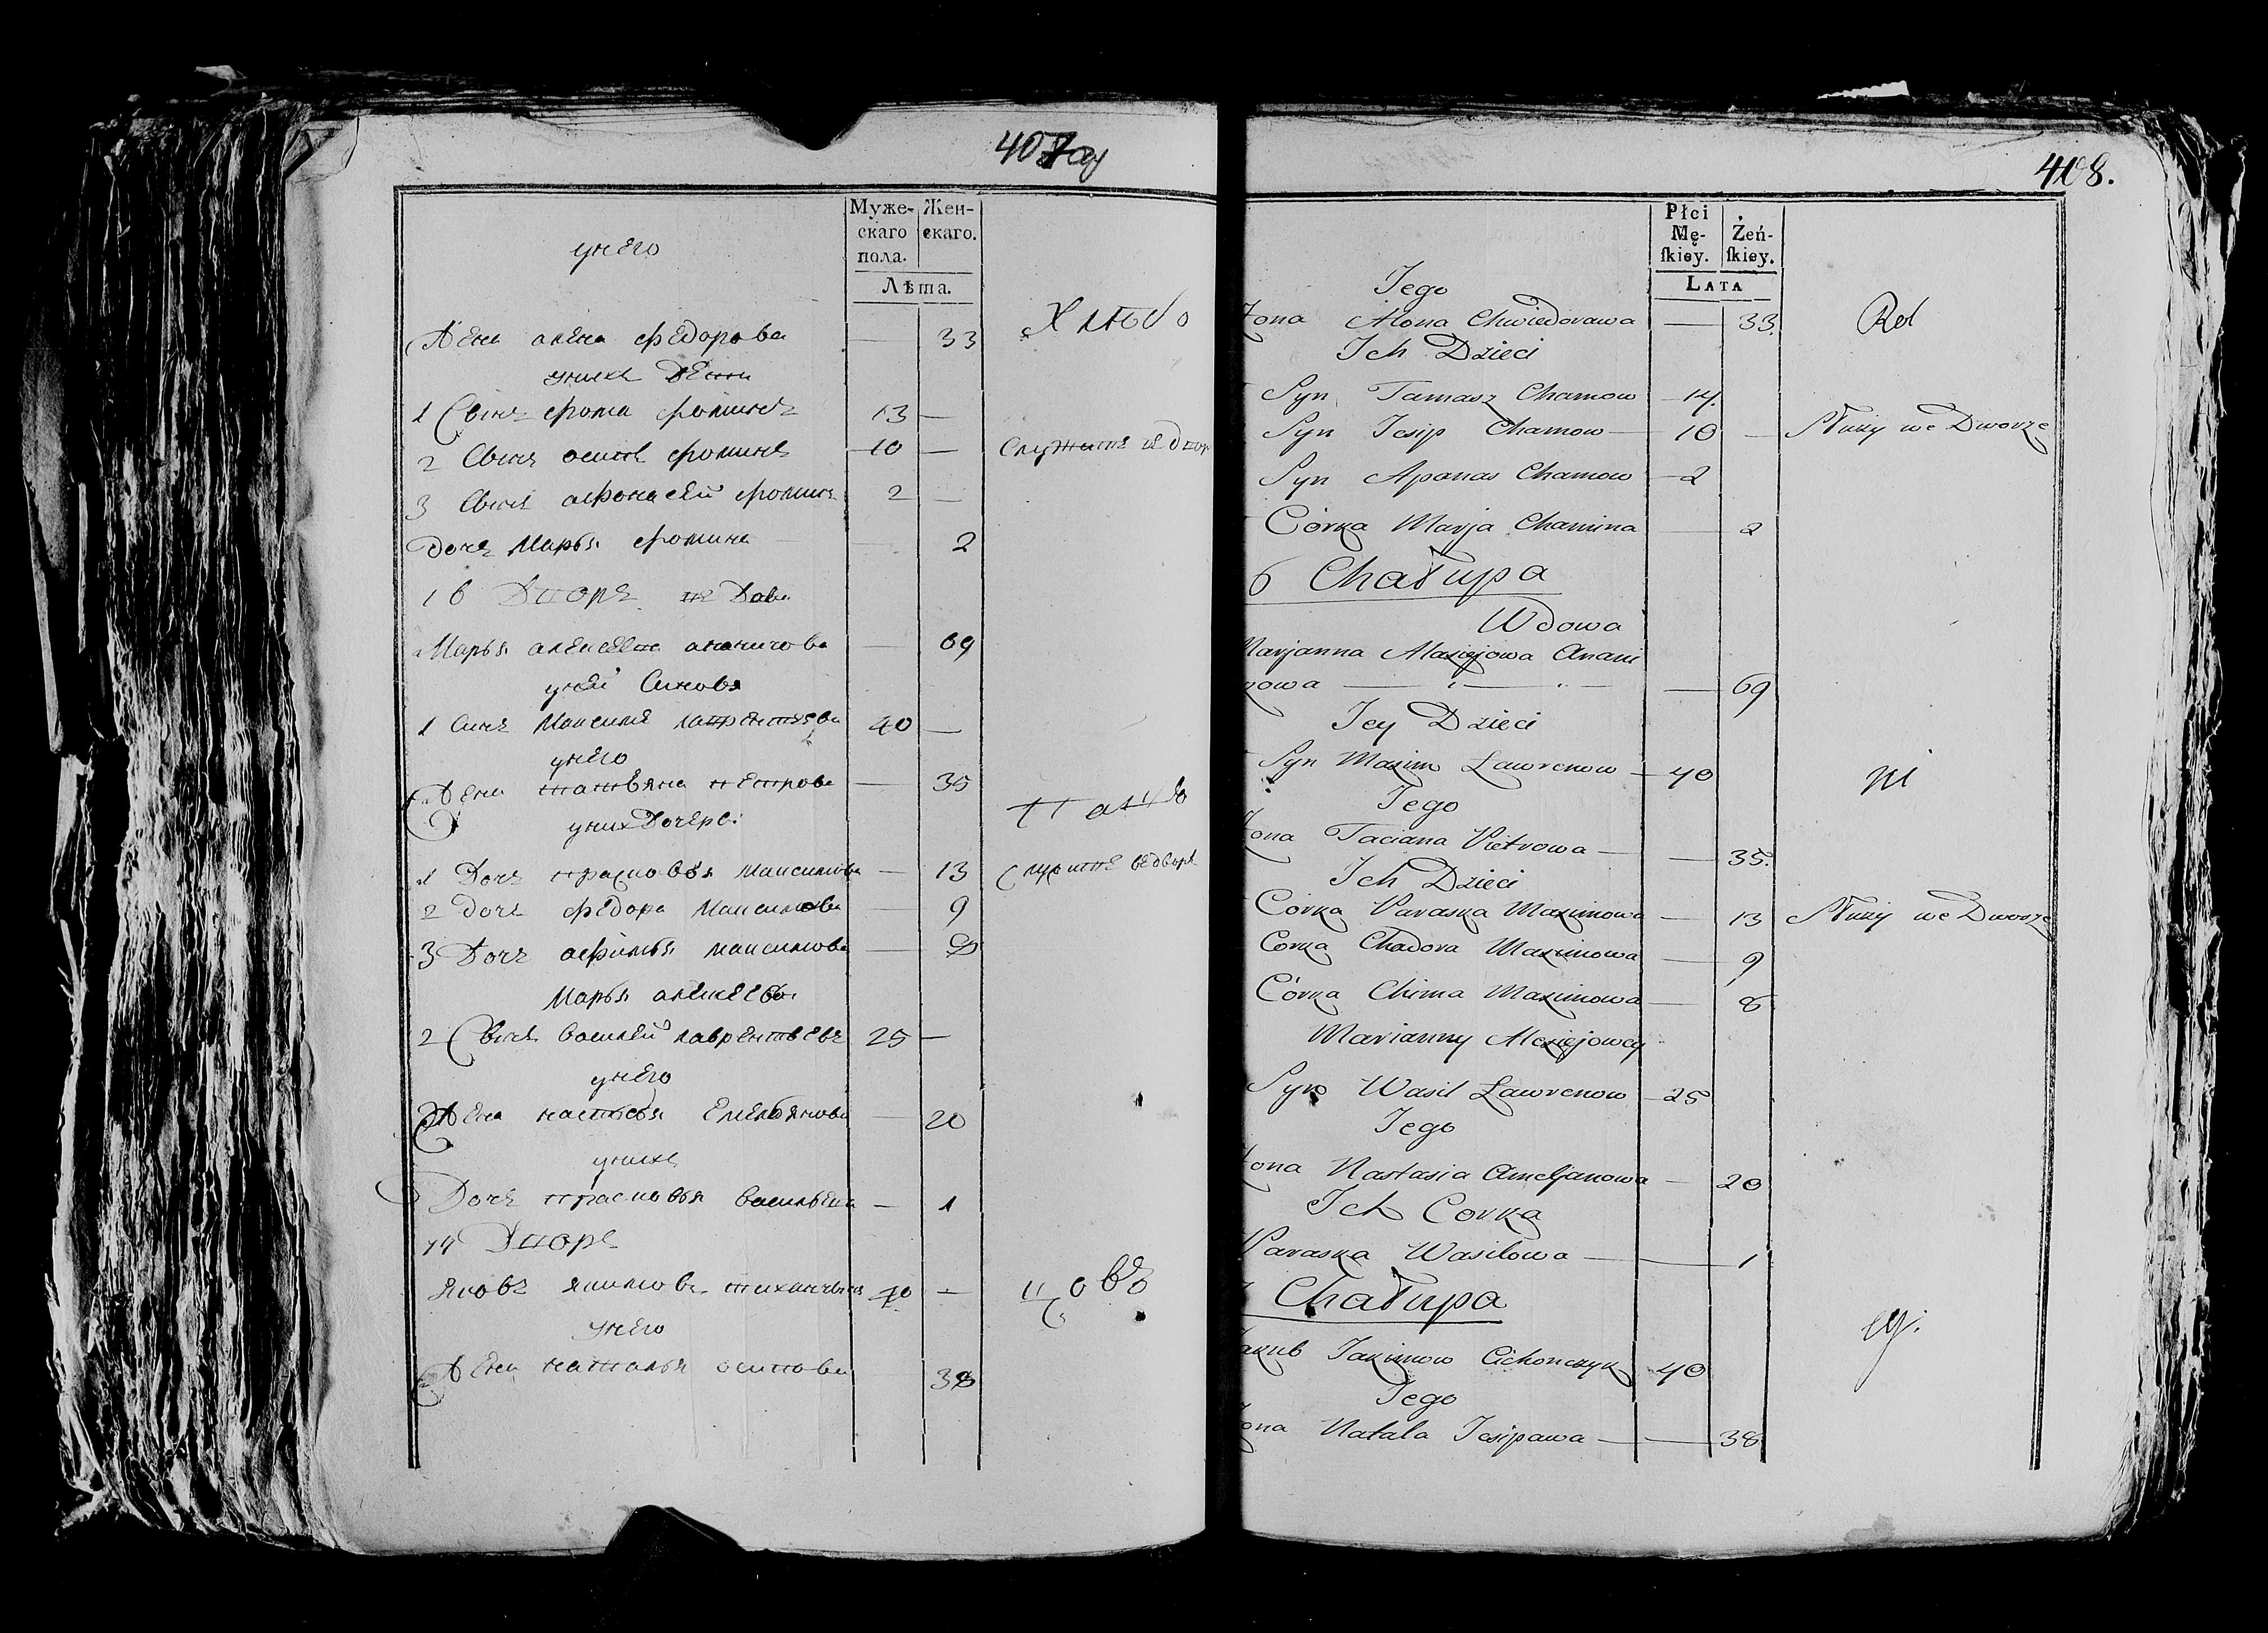 407 об
Муже-
скаго
пола.
Жен-
скаго.
Лѣта.
унего
Жена алена федорова — 33
униxъ дети
1 Сынъ фома фоминъ 13 —
2 Сынъ осипъ фоминъ 10 — служитъ
3 Сынъ афонасей фоминъ 2 —
Дочь Марья фомина — 2
16 Дворъ вдова
Марья алексеева — 69
уней Синовя
1 Синъ Максимъ лаврентьевъ 40 —
унего
Жена татьяна петрова — 35
уних Дочери
1 Дочь прасковья Максимова — 13 служитъ
2 Дочь федора Максимова — 9
3 Дочь афимья Максимова — 8
Марьи алексеевы
2 Сынъ василей лаврентьевъ 25 —
унего
Жена настасья Емельянова — 20
унихъ
Дочь прасковья васильева — 1
Дворъ
яковъ якимовъ 40 —
унего
Жена наталья осипова 38
408.
Płci
Mę-
ſkiey.
Żeń-
ſkiey.
LATA
Jego
Żona Alona Chwiedorawa — 33. Rol
Ich Dzieci
Syn Tamasz Chamow — 14.
Syn Josip Chamow — 10 — Służy we Dworze
Syn Apanas Chamow — 2
Córka Marja Chamina — 2
6 Chałupa
Wdowa
Marjanna Alexiejowa Anani
kowa — 69
Jey Dzieci
Syn Maxim Lawrenow — 40 ni
Jego
Żona Taciana Pietrowa — 35.
Ich Dzieci
Córka Paraska Maximowa — 13 Służy we Dworze
Corka Chadora Maximowa — 9
Córka Chima Maximowa — 8
Marianny Alexiejowey
Syn Wasil Lawrenow — 25
Jego
Żona Nastasia Ameljanowa — 20
Ich Corka
Paraska Wasilowa — 1
Chałupa
Jakub Jakimow Cichonczyk — 40 cy.
Jego
Żona Natala Josipawa — 38